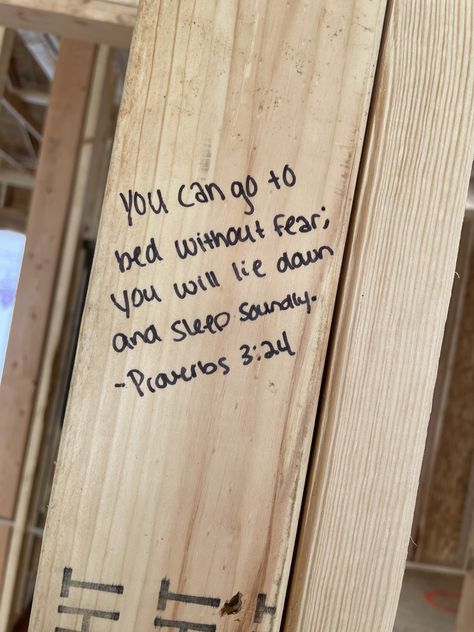 You can go to
bed without fear;
you will lie down
and sleep soundly.
-Proverbs 3:24
HT
HT